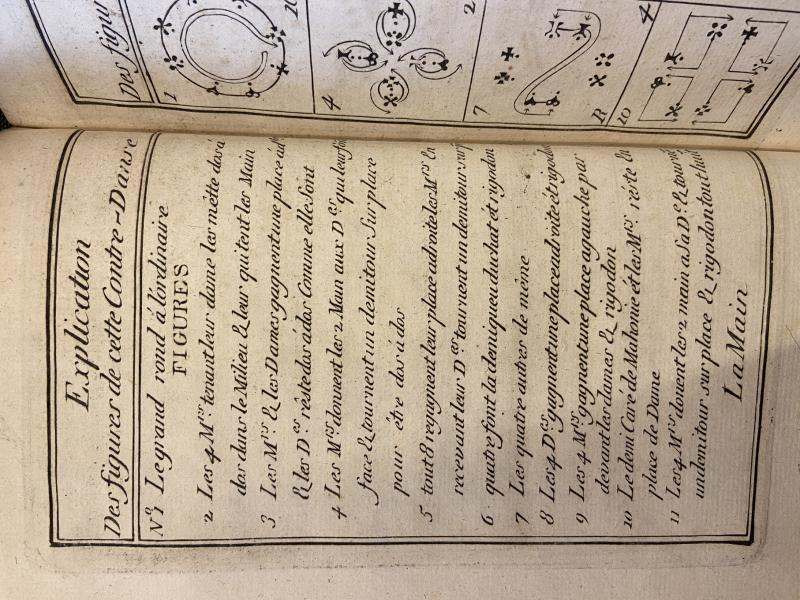 Explication
Des figures de cette Contre-Danse
No. 1 Le grand rond à l'ordinaire
FIGURES
2 Les 4 Mrs. tenant leur dame les mette dos à
dos dans le Milieu & leur quitent les Main
3 Les Mrs. & les Dames gagnent une place à
& les Des réste dos à dos Comme elle sont
4 Les Mrs donnent les 2 Main aux Des qui leur font
face & tournent un demi tour sur place
pour étre dos à dos
5 tout 8 regagnent leur place a droite les Mrs En
recevant leur Des tournent un demi tour sur
6 quatre font la demi queu du chat et rigodon
7 Les quatre autres de même
8 Les 4 Des gagnent une place a droite et rigodon
9 Les 4 Mrs gagnent une place a gauche par
devant les dames & rigodon
10 Le demi Caré de Mahonie et les Mrs. réste En
place de Dame
11 Les 4 Mrs donent les 2 main a la De & tournent
un demi tour sur place & rigodon tout huit
La Main
Des figur
1
4
2
7
R
10
4